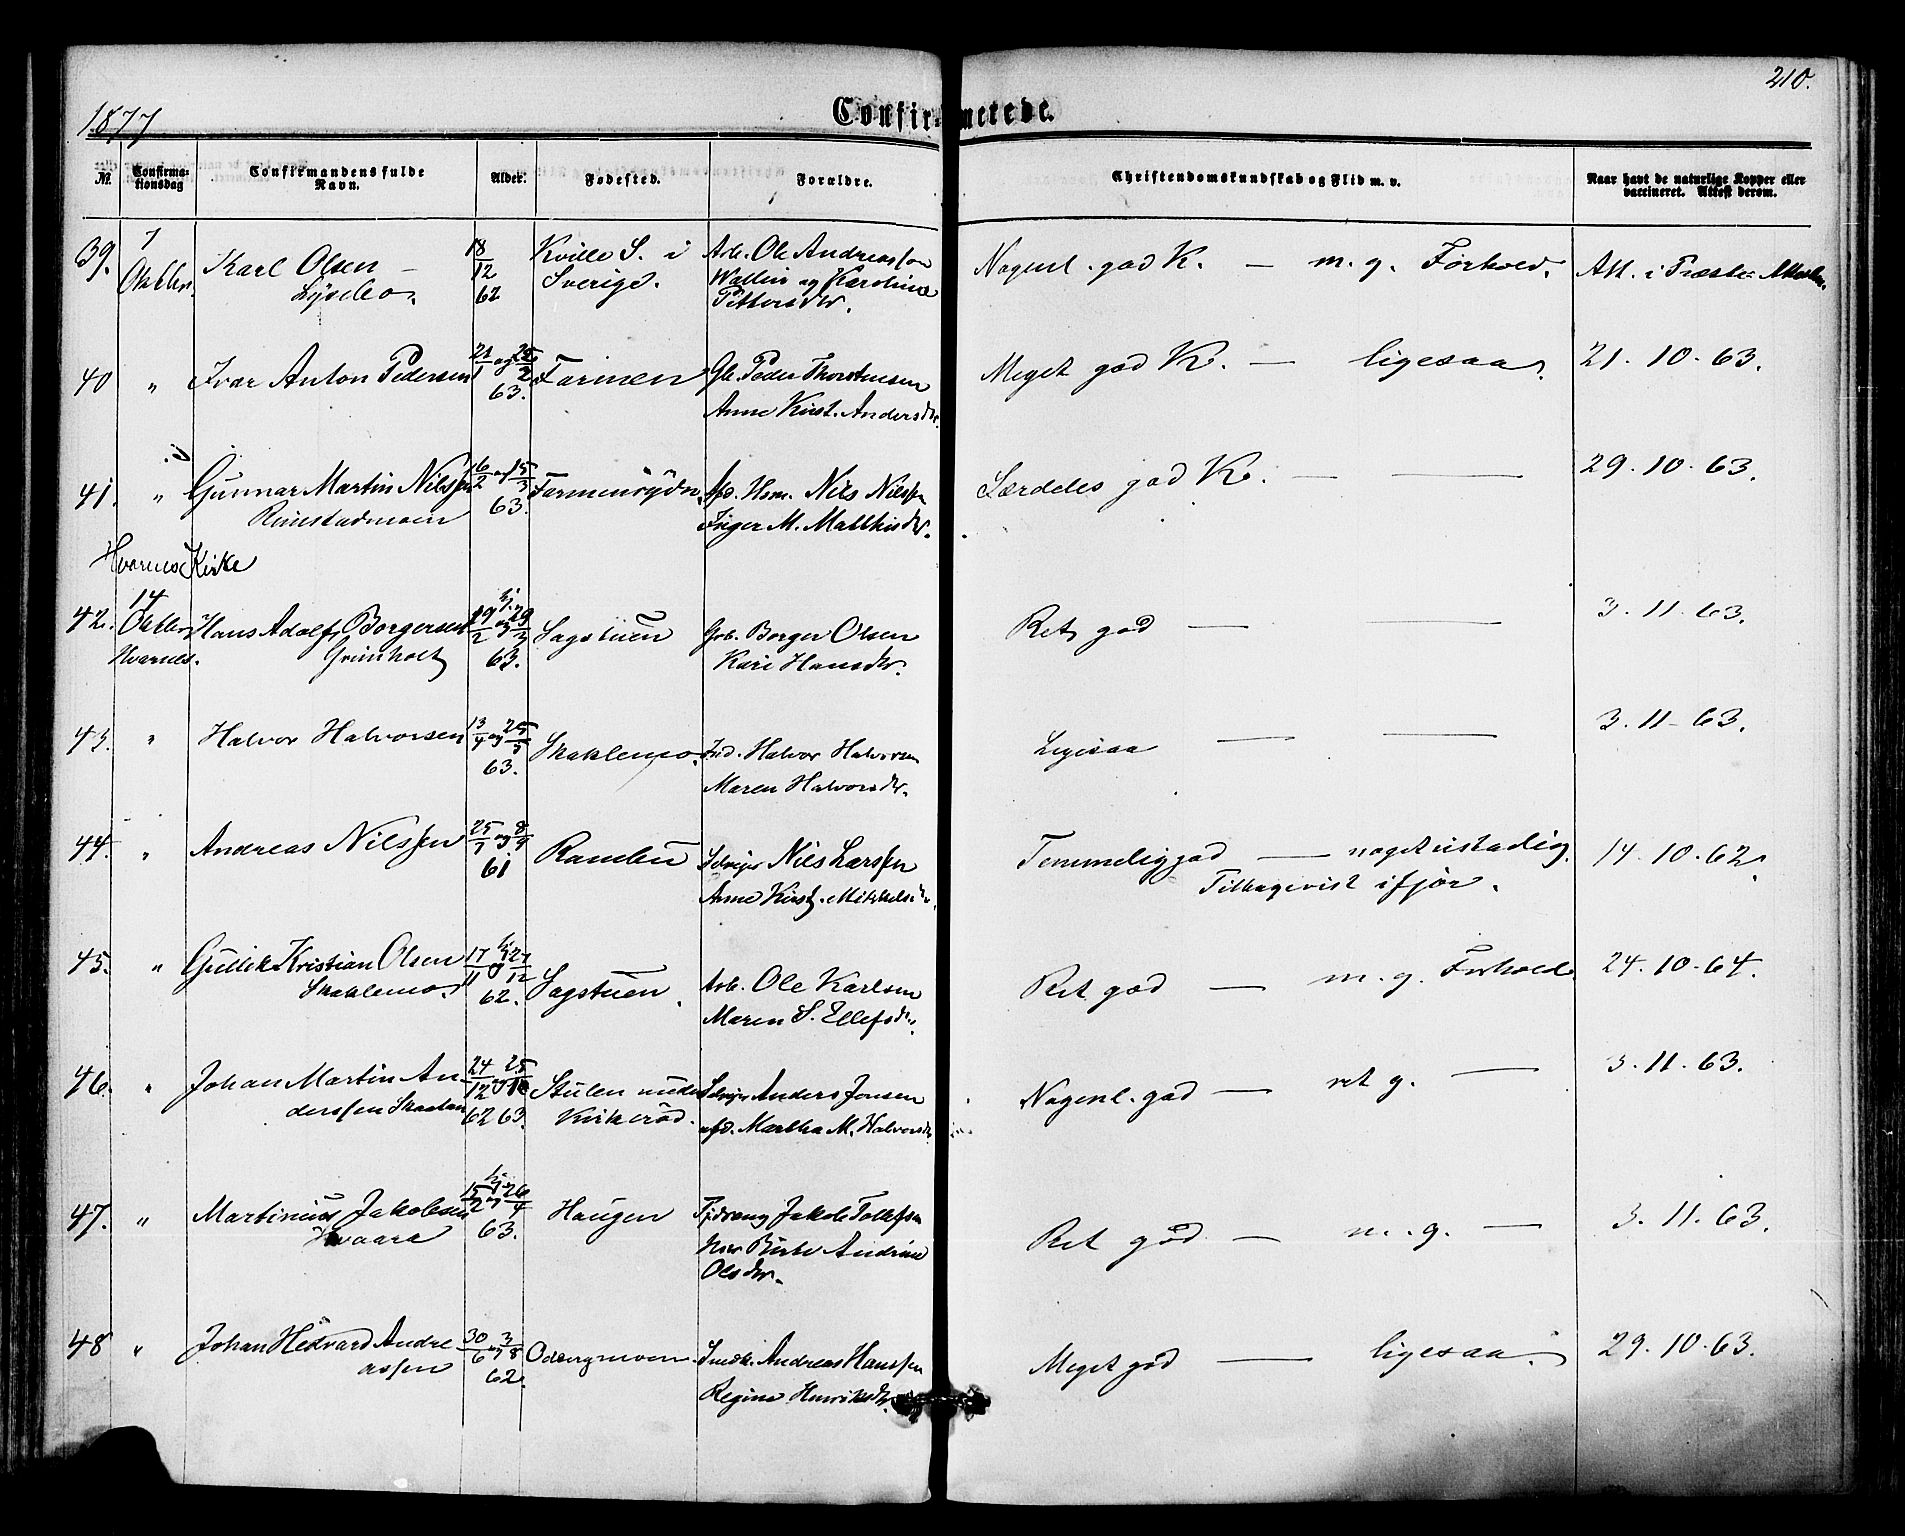 210.
1877
Confirmerede.
No.
Confirmationsdag
Confirmandens fulde Navn.
Alder.
Fødested.
Forældre.
Christendomskundskab og Flid m. v.
Naar havt de naturlige Kopper eller vaccineret. Attest derom.
39. 7 Oktbr. Karl Olsen – 18/12 62 Kville S. i Sverige. Arb. Ole Andreassen Wallin og Karoline Pettersdtr. Nogenl. god K. — m. g. Forhold. Att. i Præste
40 " Ivar Anton Pedersen 21/1 og 25/2 63. Farmen Peder Thorstensen Anne Kirst. Andersdtr. Meget god K. — ligesaa. 21. 10. 63.
41. " Gunnar Martin Nilssen Rimstadmoen 16/2 og 15/3 63. Nils Nilssen Inger M. Matthisdtr. Særdeles god K. — — 29. 10. 63.
Hvarnes Kirke
42. 14 Oktbr. Hvarnes. Hans Adolf Borgersen Grimholt 19/2 og 29/3 63. Sagstuen Borger Olsen Kari Hansdtr. Ret god — — 3. 11. 63.
43. " Halvor Halvorsen 13/4 og 25/5 63. Skaklemo. Ind. Halvor Halvorsen Maren Halvorsdtr. Ligesaa — — 3. 11 – 63.
44. " Andreas Nilssen 61 Ramlen Selveier Nils Larssen Anne Kirst. Mikkelsdtr. Temmelig god — noget ustadig. Tilbagevist ifjor. 14. 10. 62.
45. " Gullik Kristian Olsen Skaklemo. 17/11 og 27/12 62. Sagstuen. Arb. Ole Karlsen Maren S. Ellefsdtr. Ret god — m. g. Forhold. 24. 10. 64.
46. " Johan Martin Anderssen 24/12 62 63. Stulen under Kirkerød. Selveier Anders Jonsen afd. Martha M. Halvorsdtr. Nogenl. god — ret g. — 3. 11. 63.
47. " Martinius Jakobsen Hvaara 15/2 og 26/4 63. Haugen Jakob Tollefsen Andrine Olsdtr. Ret god — m. g. — 3. 11. 63.
48 " Johan Hedvard Andreassen 30/6 og 3/8 62. Odbergmoen. Smedm. Andreas Hanssen Regine Henriksdtr. Meget god — ligesaa. 29. 10. 63.